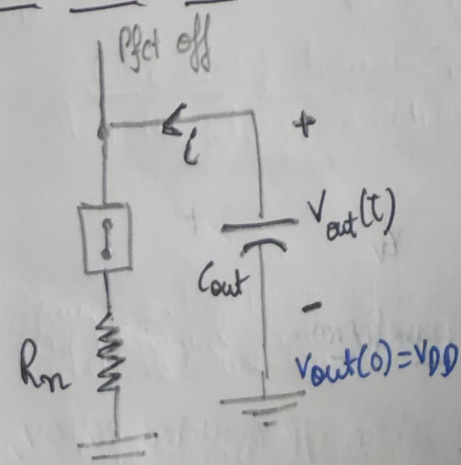 Pfet off
i
+
Vout(t)
Cout
-
Rn
Vout(0)=VDD